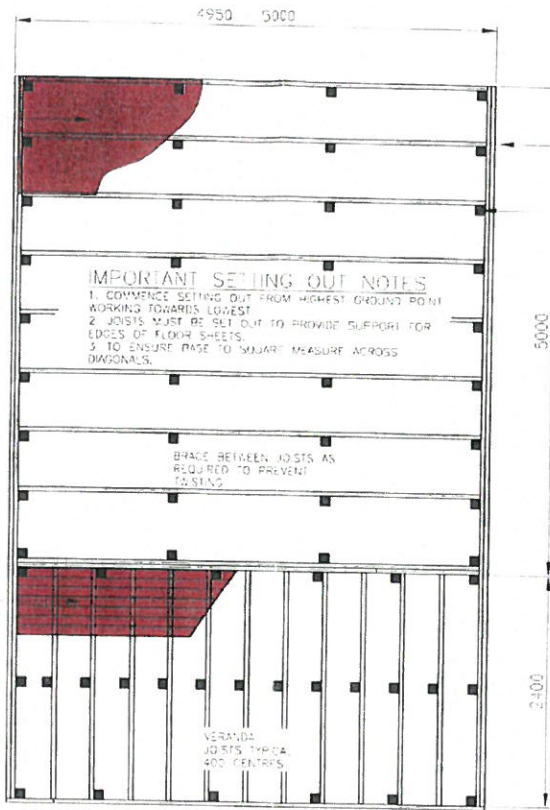 4950 5000
IMPORTANT SETTING OUT NOTES
1. COMMENCE SETTING OUT FROM HIGHEST GROUND POINT
WORKING TOWARDS LOWEST
2. JOISTS MUST BE SET OUT TO PROVIDE SUPPORT FOR
EDGES OF FLOOR SHEETS.
3. TO ENSURE BASE TO SQUARE MEASURE ACROSS
DIAGONALS.
5000
BRACE BETWEEN JOISTS AS
REQUIRED TO PREVENT
TWISTING
2400
VERANDA
JOISTS TYPICAL
400 CENTRES